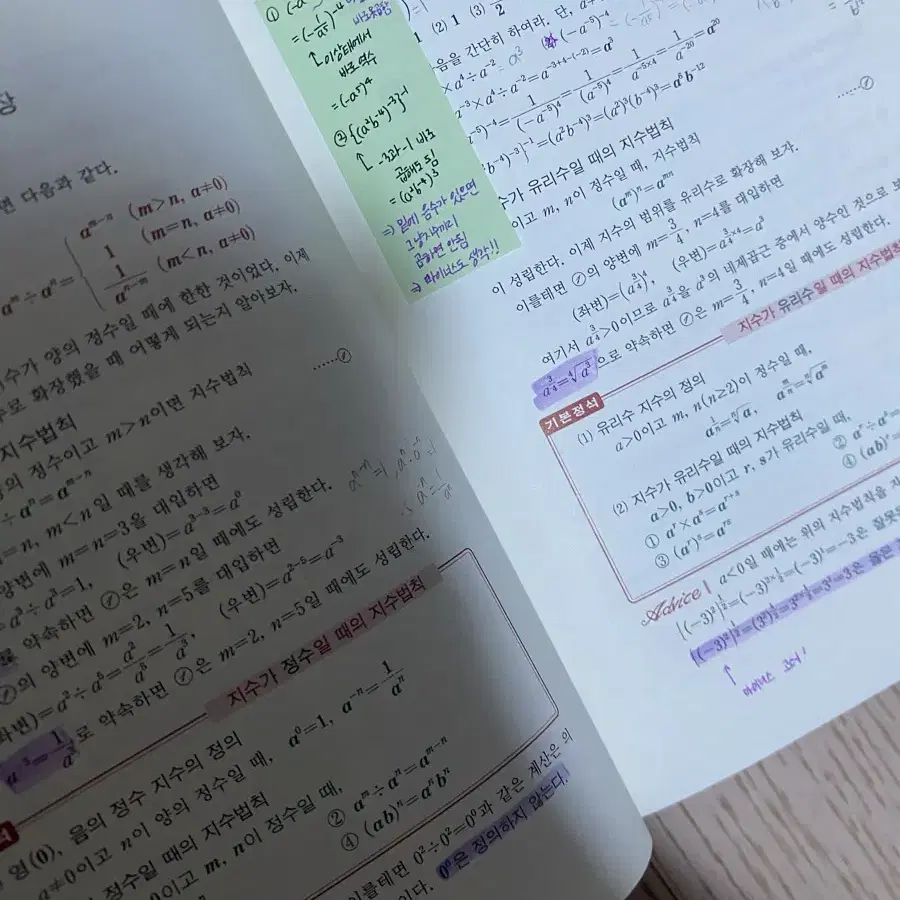 장
면 다음과 같다.
aᵐ÷aⁿ= { aᵐ⁻ⁿ (m>n, a≠0)
1 (m=n, a≠0)
1/aⁿ⁻ᵐ (m<n, a≠0)
지수가 양의 정수일 때에 한한 것이었다. 이제
로 확장했을 때 어떻게 되는지 알아보자.
지수법칙
정수이고 m>n이면 지수법칙
÷aⁿ=aᵐ⁻ⁿ ……⊘
=n, m<n일 때를 생각해 보자.
양변에 m=n=3을 대입하면
a³÷a³=1, (우변)=a³⁻³=a⁰
로 약속하면 ⊘은 m=n일 때에도 성립한다.
⊘의 양변에 m=2, n=5를 대입하면
변)=a²÷a⁵=a²/a⁵=1/a³, (우변)=a²⁻⁵=a⁻³
a⁻³=1/a³로 약속하면 ⊘은 m=2, n=5일 때에도 성립한다.
지수가 정수일 때의 지수법칙
영(0), 음의 정수 지수의 정의
a≠0이고 n이 양의 정수일 때, a⁰=1, a⁻ⁿ=1/aⁿ
정수일 때의 지수법칙
0이고 m, n이 정수일 때,
② aᵐ÷aⁿ=aᵐ⁻ⁿ
④ (ab)ⁿ=aⁿbⁿ
이를테면 0²÷0²=0⁰과 같은 계산은 의
이다. 0⁰은 정의하지 않는다.
①
=(-1/a⁵)⁻⁴
↑이상태에서
바로 역수
=(-a⁵)⁴
② {(a²b⁻⁴)⁻³}⁻¹
↑ -3과 -1 바로
곱해도 됨
=(a²b⁻⁴)³
⇒ 밑에 음수가 있으면
그냥 지수끼리
곱하면 안됨
⇒ 마이너스도 생각!!
(2) 1 (3) 1/2
음을 간단히 하여라. 단,
×a⁴÷a⁻²
⁻³×a⁴÷a⁻²=a⁻³⁺⁴⁻⁽⁻²⁾=a³
⁻⁵)⁻⁴=1/(-a⁻⁵)⁴=1/(a⁻⁵)⁴=1/a⁻⁵ˣ⁴=1/a⁻²⁰=a²⁰
b⁻⁴)⁻³}⁻¹=(a²b⁻⁴)³=(a²)³(b⁻⁴)³=a⁶b⁻¹²
수가 유리수일 때의 지수법칙
이고 m, n이 정수일 때, 지수법칙
(aᵐ)ⁿ=aᵐⁿ ……⊘
이 성립한다. 이제 지수의 범위를 유리수로 확장해 보자.
이를테면 ⊘의 양변에 m=3/4, n=4를 대입하면
(좌변)=(a^(3/4))⁴, (우변)=a^(3/4×4)=a³
여기서 a^(3/4)>0이므로 a^(3/4)을 a³의 네제곱근 중에서 양수인 것으로
a^(3/4)=⁴√a³으로 약속하면 ⊘은 m=3/4, n=4일 때에도 성립한다.
지수가 유리수일 때의 지수법칙
기본정석
(1) 유리수 지수의 정의
a>0이고 m, n(n≥2)이 정수일 때,
a^(1/n)=ⁿ√a, a^(m/n)=ⁿ√aᵐ
(2) 지수가 유리수일 때의 지수법칙
a>0, b>0이고 r, s가 유리수일 때,
① aʳ×aˢ=aʳ⁺ˢ
③ (aʳ)ˢ=aʳˢ
② aʳ÷aˢ=
④ (ab)ʳ
Advice | a<0일 때에는 위의 지수법칙을
{(-3)²}^(1/2)=(-3)^(2×1/2)=(-3)¹=-3은 잘못
{(-3)²}^(1/2)=(3²)^(1/2)=3^(2×1/2)=3¹=3은 옳은
↑
마이너스